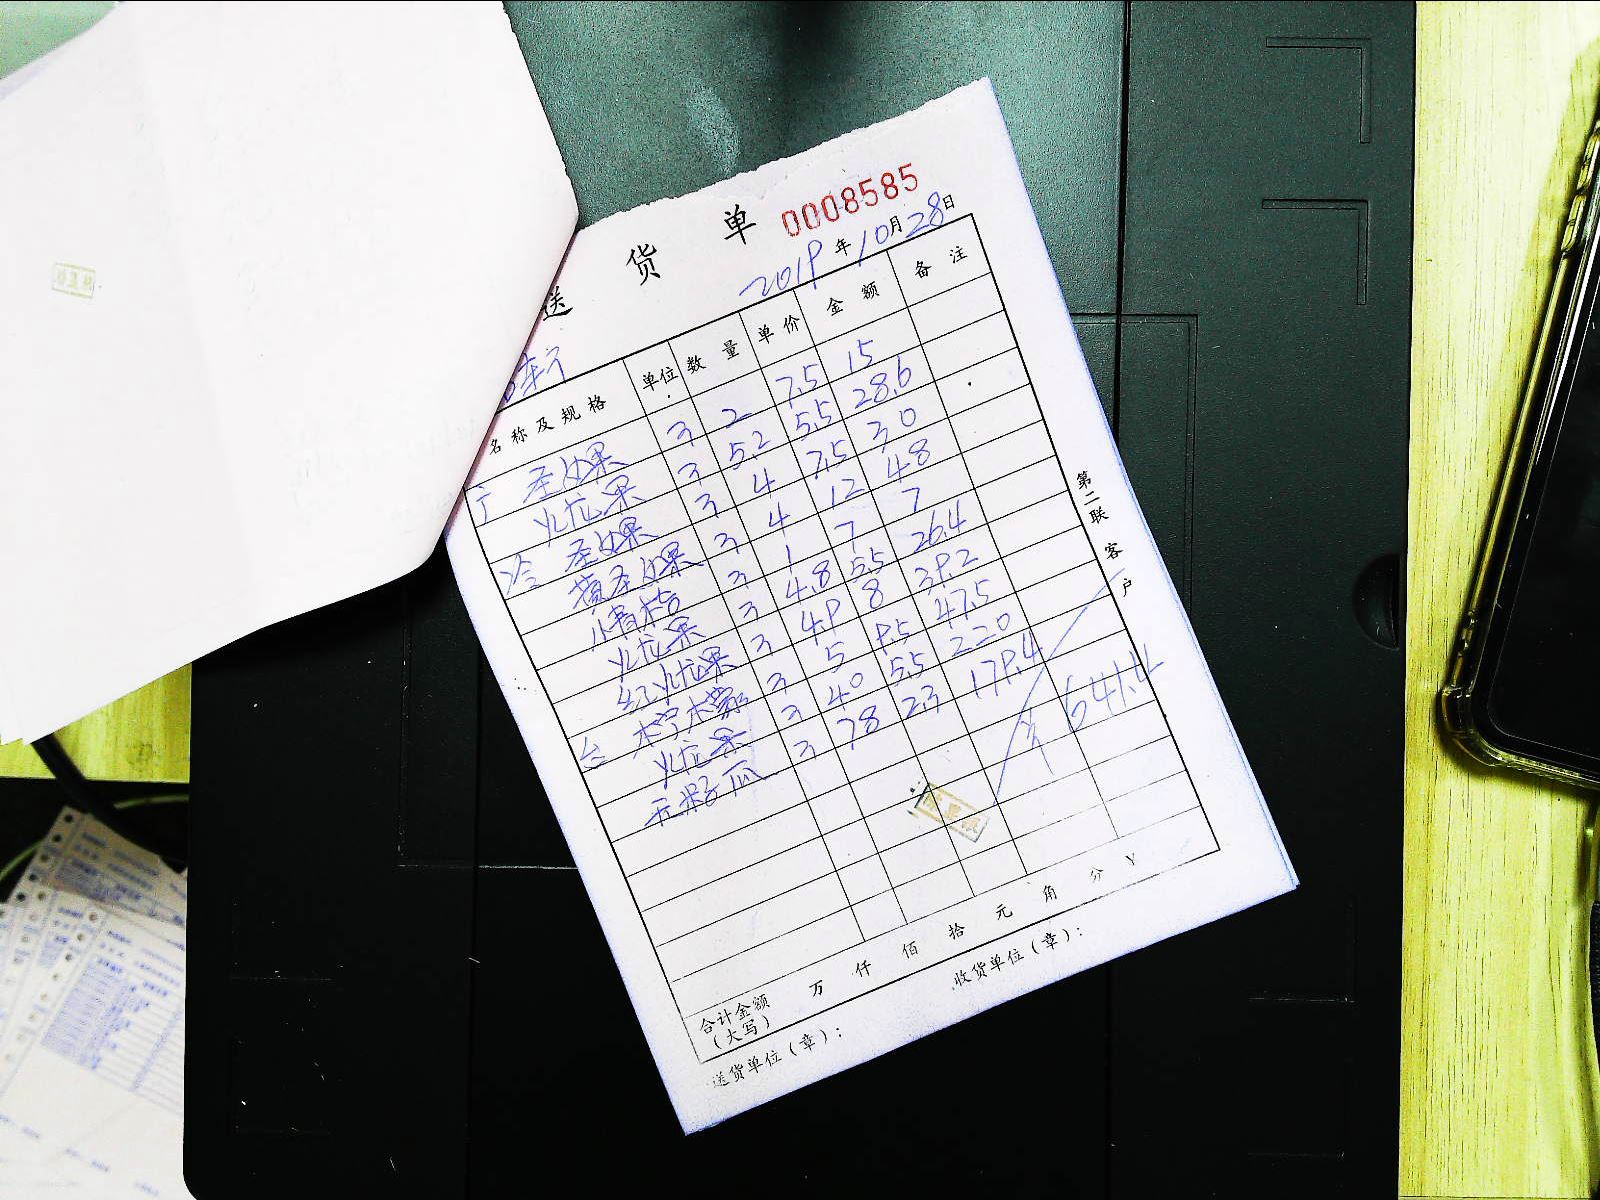 送 货 单 0008585
2019 年 10 月 28 日
名称及规格 单位 数量 单价 金额 备注
圣女果 3 2 7.5 15
火龙果 3 5.2 5.5 28.6
圣女果 3 4 7.5 30
黄圣女果 3 4 12 48
小青桔 3 1 7 7
火龙果 3 4.8 5.5 26.4
红火龙果 3 4.9 8 39.2
柠檬 3 5 9.5 47.5
火龙果 3 40 5.5 220
3 78 2.3 179.4
641.1
合计金额(大写) 万 仟 佰 拾 元 角 分 ¥
送货单位(章): 收货单位(章):
第二联 客户